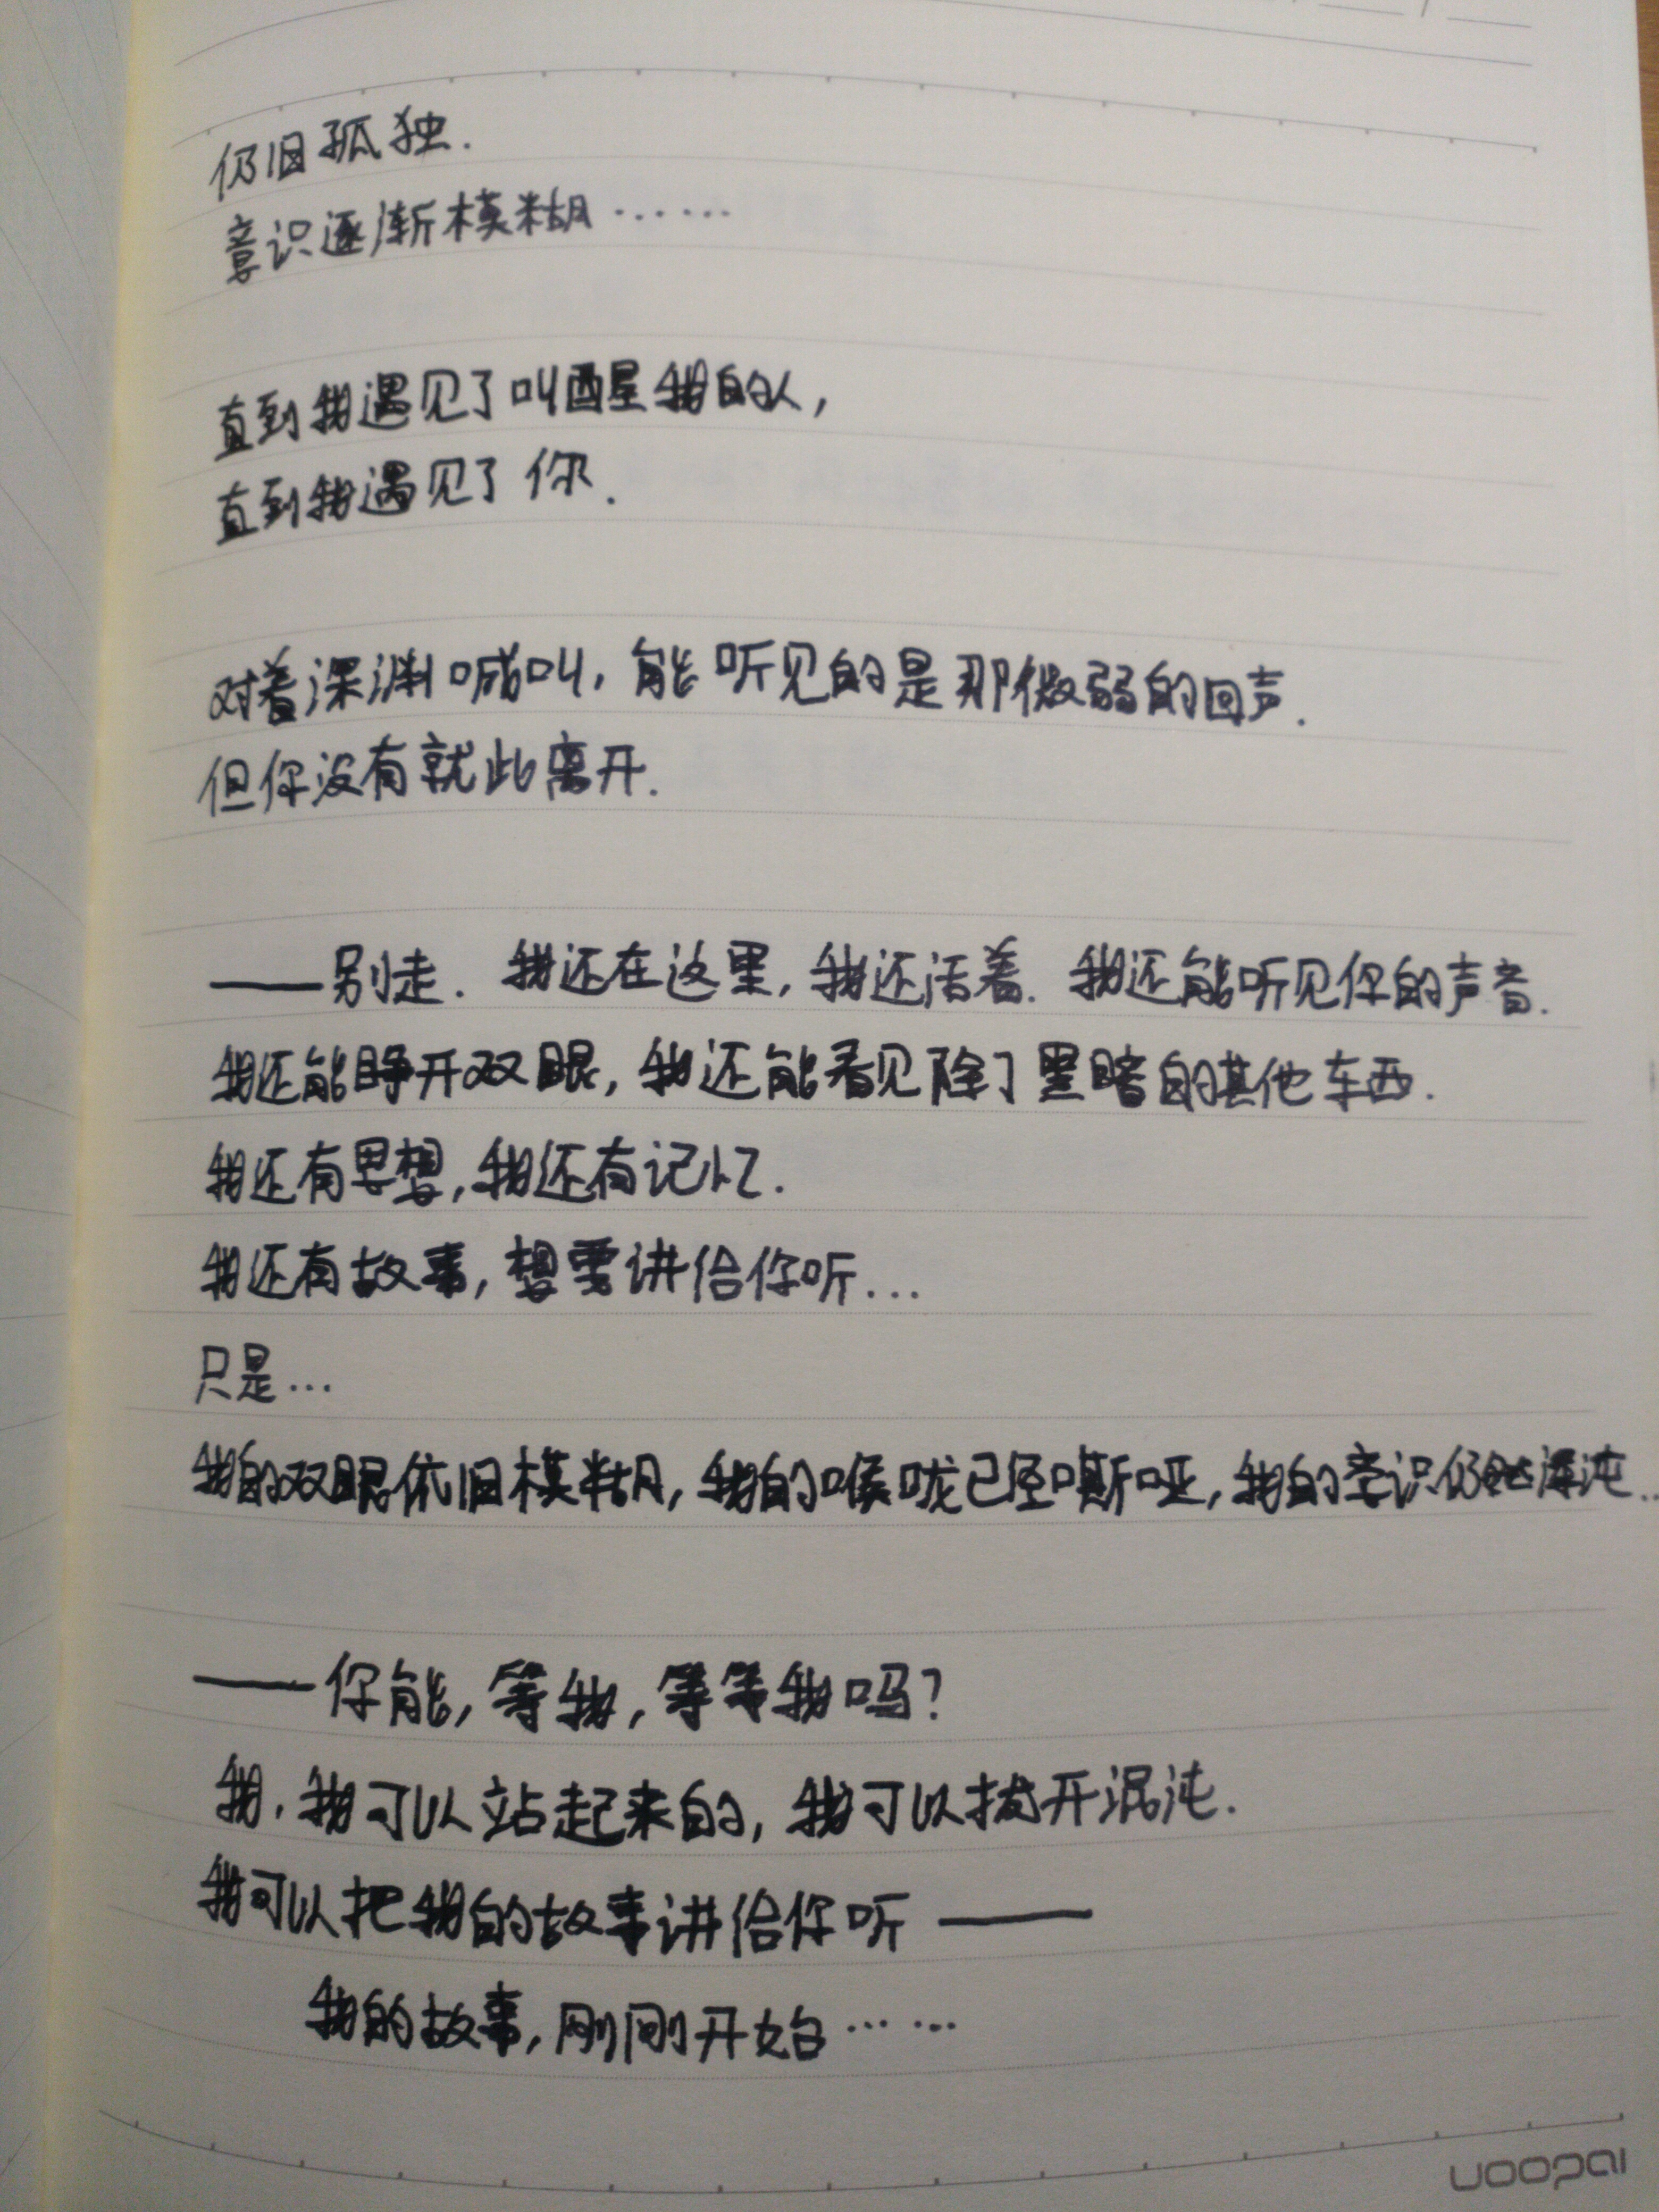 仍旧孤独.
意识逐渐模糊……
直到我遇见了叫醒我的人,
直到我遇见了你.
对着深渊喊叫,能听见的是那微弱的回声.
但你没有就此离开.
——别走.我还在这里,我还活着.我还能听见你的声音.
我还能睁开双眼,我还能看见除了黑暗的其他东西.
我还有思想,我还有记忆.
我还有故事,想要讲给你听...
只是...
我的双眼依旧模糊,我的喉咙已经嘶哑,我的意识仍然混沌...
——你能,等我,等等我吗?
我.我可以站起来的,我可以拨开混沌.
我可以把我的故事讲给你听——
我的故事,刚刚开始……
uoopai